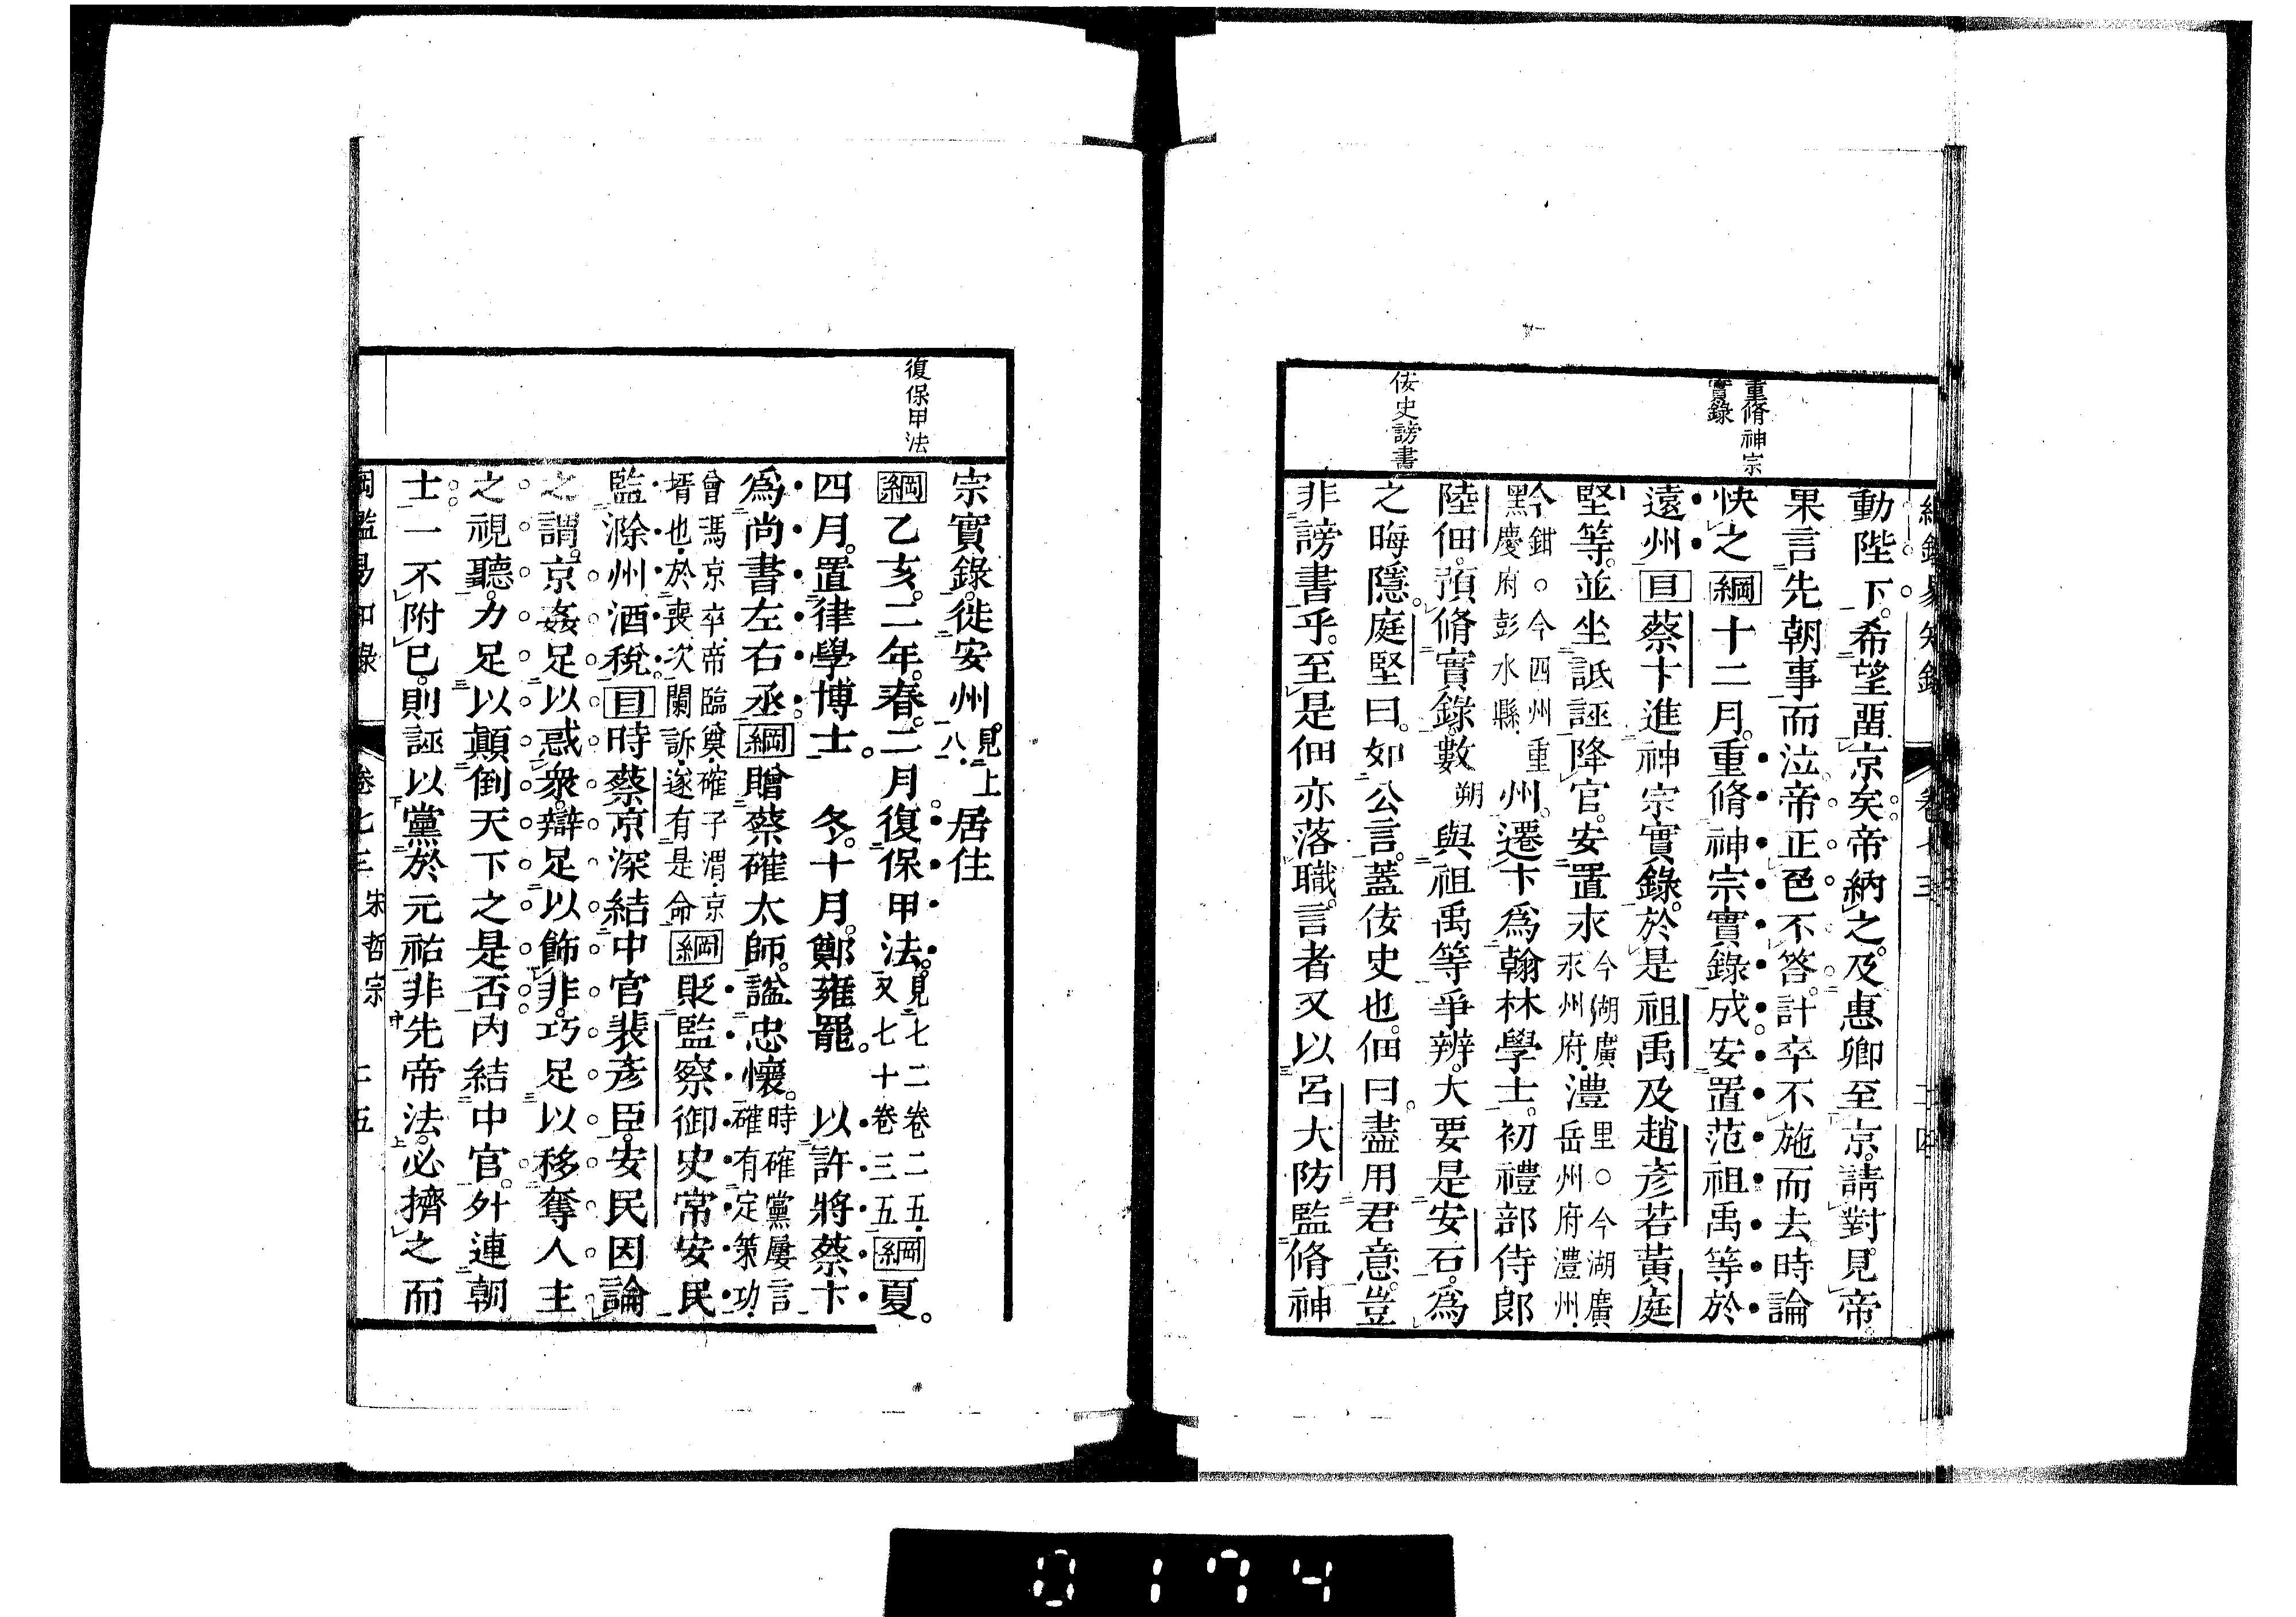 重脩神宗
實錄
佞史謗書
動陛下。希望畱京矣。帝納之。及惠卿至京。請對。見帝。
果言先朝事而泣。帝正色不答。計卒不施而去。時論
快之綱十二月。重脩神宗實錄成。安置范祖禹等於
遠州。目蔡卞進神宗實錄。於是祖禹及趙彥若黃庭
堅等。並坐詆誣降官。安置永今湖廣永州府。澧里○今湖廣岳州府澧州。
黔鉗○今四川重慶府彭水縣。州。遷卞爲翰林學士。初禮部侍郎
陸佃。預脩實錄。數朔與祖禹等爭辨。大要是安石。爲
之晦隱。庭堅曰。如公言。蓋佞史也。佃曰。盡用君意。豈
非謗書乎。至是佃亦落職。言者又以呂大防監脩神
復保甲法
宗實錄。徙安州。見上八一。居住
綱乙亥。二年。春。二月復保甲法。見七二卷二五。又七十卷三五綱夏。
四月。置律學博士。冬。十月。鄭雍罷。以許將蔡卞
爲尚書左右丞。綱贈蔡確太師。諡忠懷。時確黨屢言確有定策功。
會馮京卒。帝臨奠。確子渭。京壻也。於喪次闌訴。遂有是命綱貶監察御史常安民
監滁州酒稅。目時蔡京深結中官裴彥臣。安民因論
之謂。京姦足以惑衆。辯足以飾非。巧足以移奪人主
之視聽。力足以顚倒天下之是否。內結中官。外連朝
士。一不附已。則誣以黨於元祐。非先帝法。必擠之而
綱鑑易知錄 卷七三 宋哲宗 十五
0174